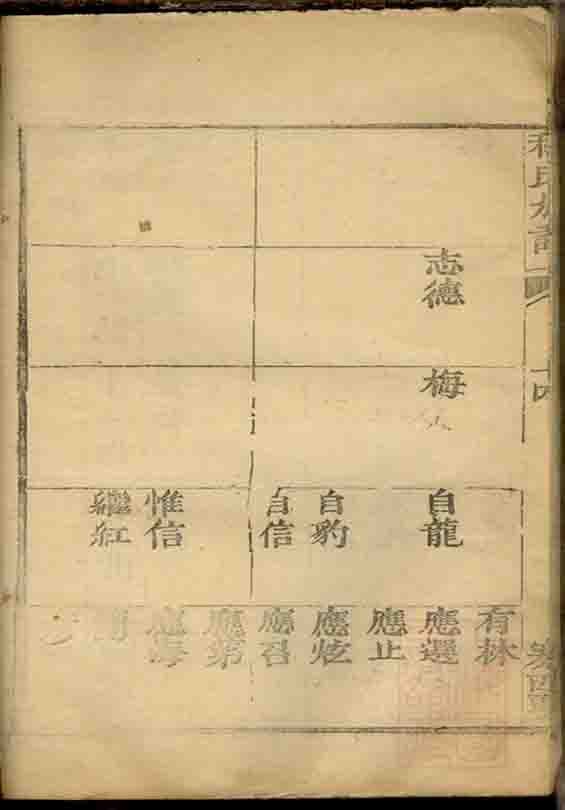 氏
十四
志德
梅
自龍
自豹
自信
惟信
繼紅
有林
應選
應止
應炫
應召
應第
應海